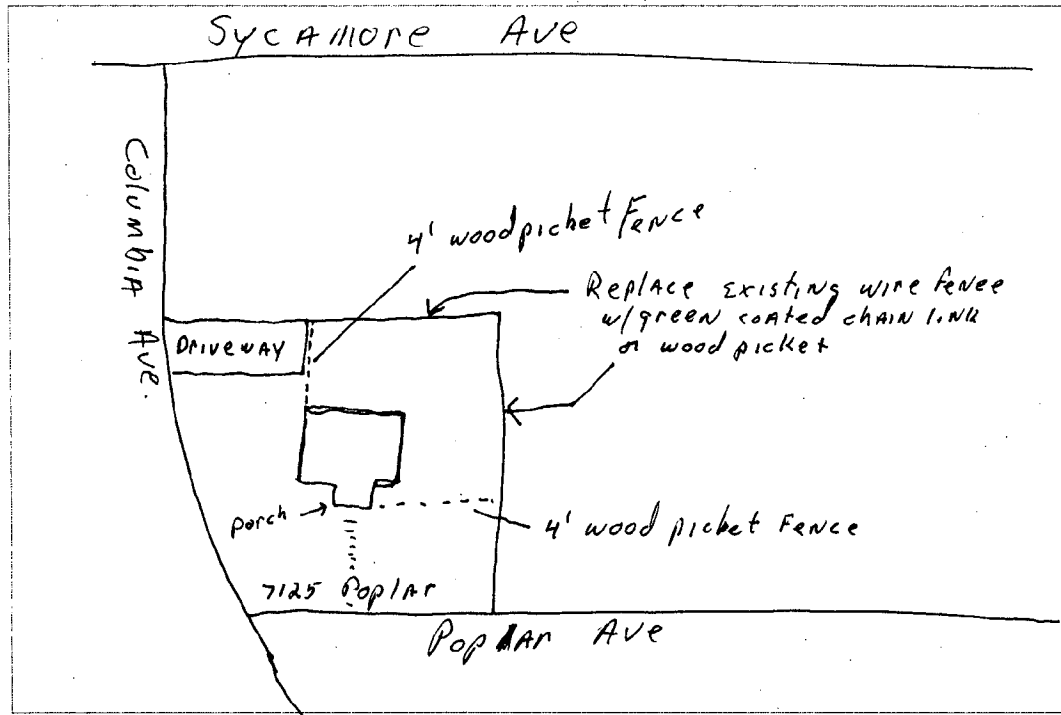 Sycamore Ave
Columbia Ave.
4' wood picket Fence
Replace Existing wire fence
w/green coated chain link
or wood picket
Driveway
porch
4' wood picket Fence
7125 Poplar
Poplar Ave